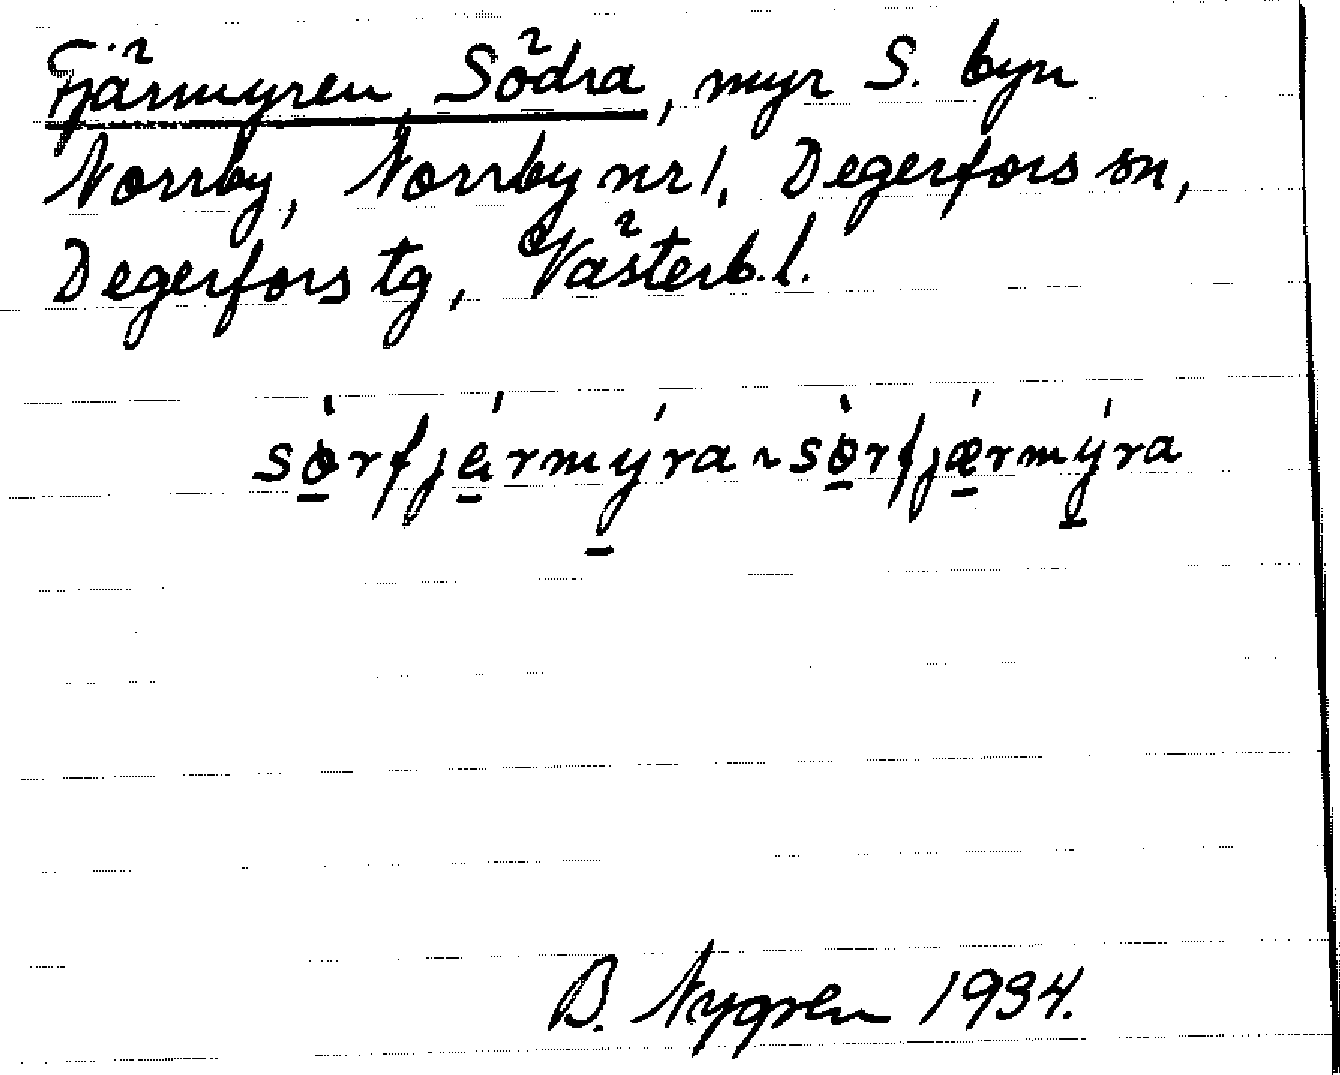 Fjärmyren, Södra, myr S. byn
Norrby, Norrby nr 1, Degerfors sn,
Degerfors tg, Västerb. l.
sò̠rfjé̠rmý̠ra ~ sò̠rfjǽ̠rmý̠ra
B. Nygren 1934.